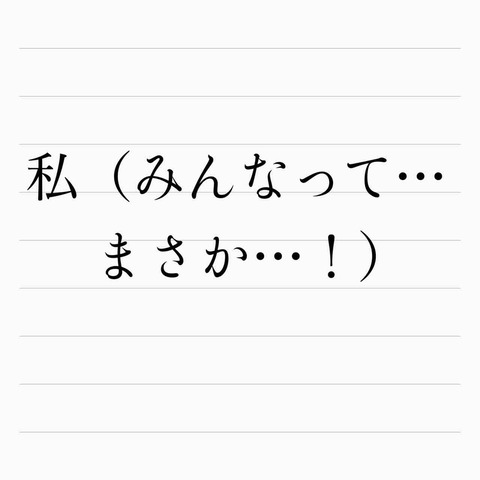 私（みんなって…
まさか…！）